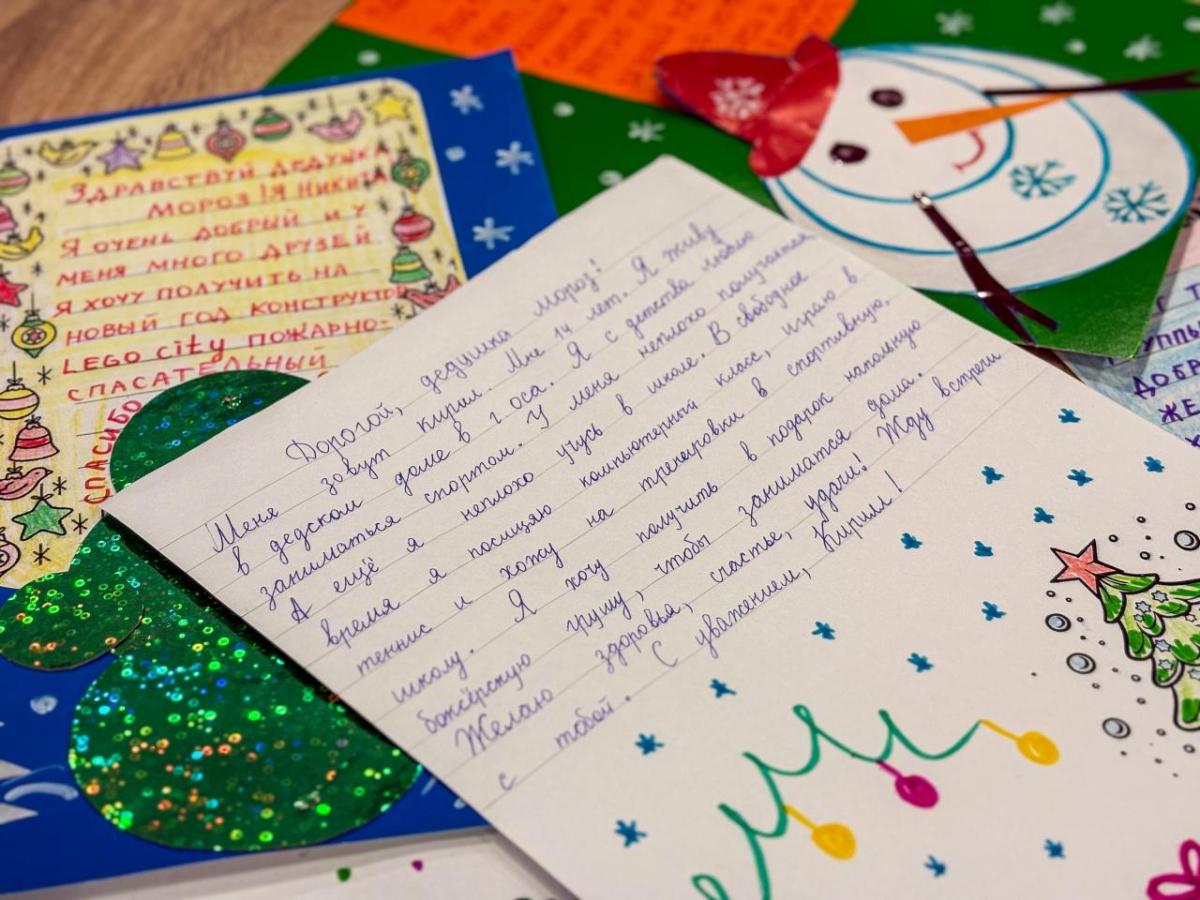 ЗДРАВСТВУЙ ДЕДУШКА
МОРОЗ! Я НИКИТА
Я ОЧЕНЬ ДОБРЫЙ И У
МЕНЯ МНОГО ДРУЗЕЙ
Я ХОЧУ ПОЛУЧИТЬ НА
НОВЫЙ ГОД КОНСТРУКТО
LEGO city ПОЖАРНО-
СПАСАТЕЛЬНЫЙ
СПАСИБО
Дорогой, дедушка мороз!
Меня зовут Кирил. Мне 14 лет. Я живу
в дедском доме в г оса. Я с детства люблю
заниматься спортом. У меня неплохо получается
А ещё я неплохо учусь в школе. В свободное
время я посищяю компьютерный класс, играю в
теннис и хожу на тренеровки в спортивную
школу. Я хочу получить в подарок напольную
боксёрскую грушу, чтобы заниматся дома.
Желаю здоровья, счастье, удачи! Жду встречи
с тобой. С уважением, Кирилл!
ДОБР
ЖЕ